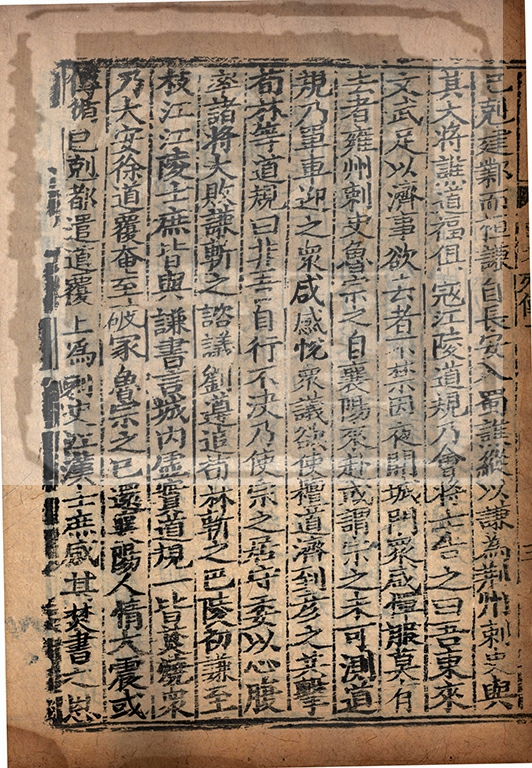 已剋建鄴而桓謙自長安入蜀譙縱以謙為荊州刺史與
其大將譙道福俱寇江陵道規乃會將士告之曰吾東來
文武足以濟事欲去者不禁因夜開城門衆咸憚服莫有
去者雍州刺史魯宗之自襄陽來赴或謂宗之未可測道
規乃單車迎之衆咸感悅衆議欲使檀道濟到彥之共擊
荀林等道規曰非吾自行不決乃使宗之居守委以心腹
率諸將大敗謙斬之諮議劉遵追荀林斬之巴陵初謙至
枝江江陵士庶皆與謙書言城內虛實道規一皆焚燒衆
乃大安徐道覆奄至破冢魯宗之已還襄陽人情大震或
傳循已剋都遣道覆上為刺史江漢士庶感其焚書之恩